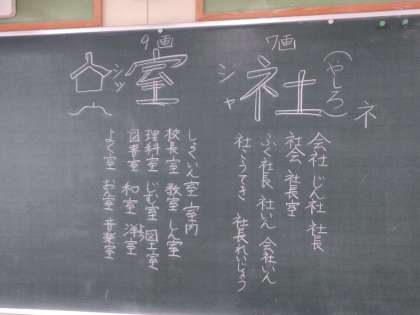 7画
社
シャ
(やしろ)
ネ
会社 じん社 社長
社会 社長室
ふく社長 社いん 会社いん
社こうてき 社長れいじょう
9画
室
シツ
しょくいん室 室内
校長室 教室 しん室
理科室 じむ室 図工室
図書室 和室 洋室
よく室 おん室 音楽室